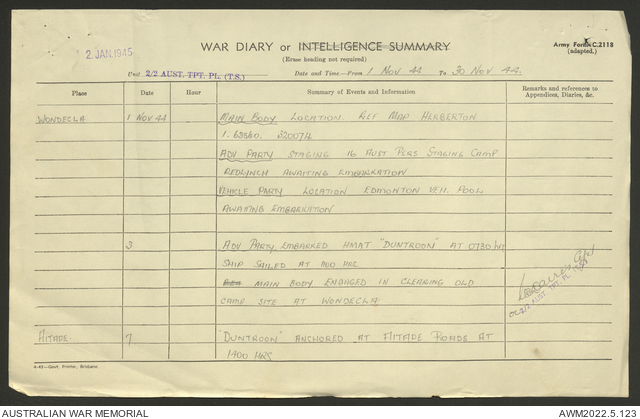 2 JAN 1945
WAR DIARY or INTELLIGENCE SUMMARY
(Erase heading not required)
Army Form C.2118
(adapted.)
Unit 2/2 AUST. TPT. PL. (T.S.) Date and Time—From 1 NOV 44 To 30 NOV 44.
Place Date Hour Summary of Events and Information Remarks and references to Appendices, Diaries, &c.
WONDECLA 1 NOV 44 MAIN BODY LOCATION. REF MAP HERBERTON
1. 63360. 320074
ADV PARTY STAGING 16 AUST PERS STAGING CAMP
REDLYNCH AWAITING EMBARKATION
VEHICLE PARTY LOCATION EDMONTON VEH. POOL
AWAITING EMBARKATION
3 ADV PARTY EMBARKED HMAT "DUNTROON" AT 0730 hrs
SHIP SAILED AT 1100 HRS
MAIN BODY ENGAGED IN CLEARING OLD
CAMP SITE AT WONDECLA
OC 2/2 AUST TPT PL (T.S)
AITAPE. 7 "DUNTROON" ANCHORED AT AITAPE ROADS AT
1400 HRS
4-43—Govt. Printer, Brisbane
AUSTRALIAN WAR MEMORIAL
AWM2022.5.123